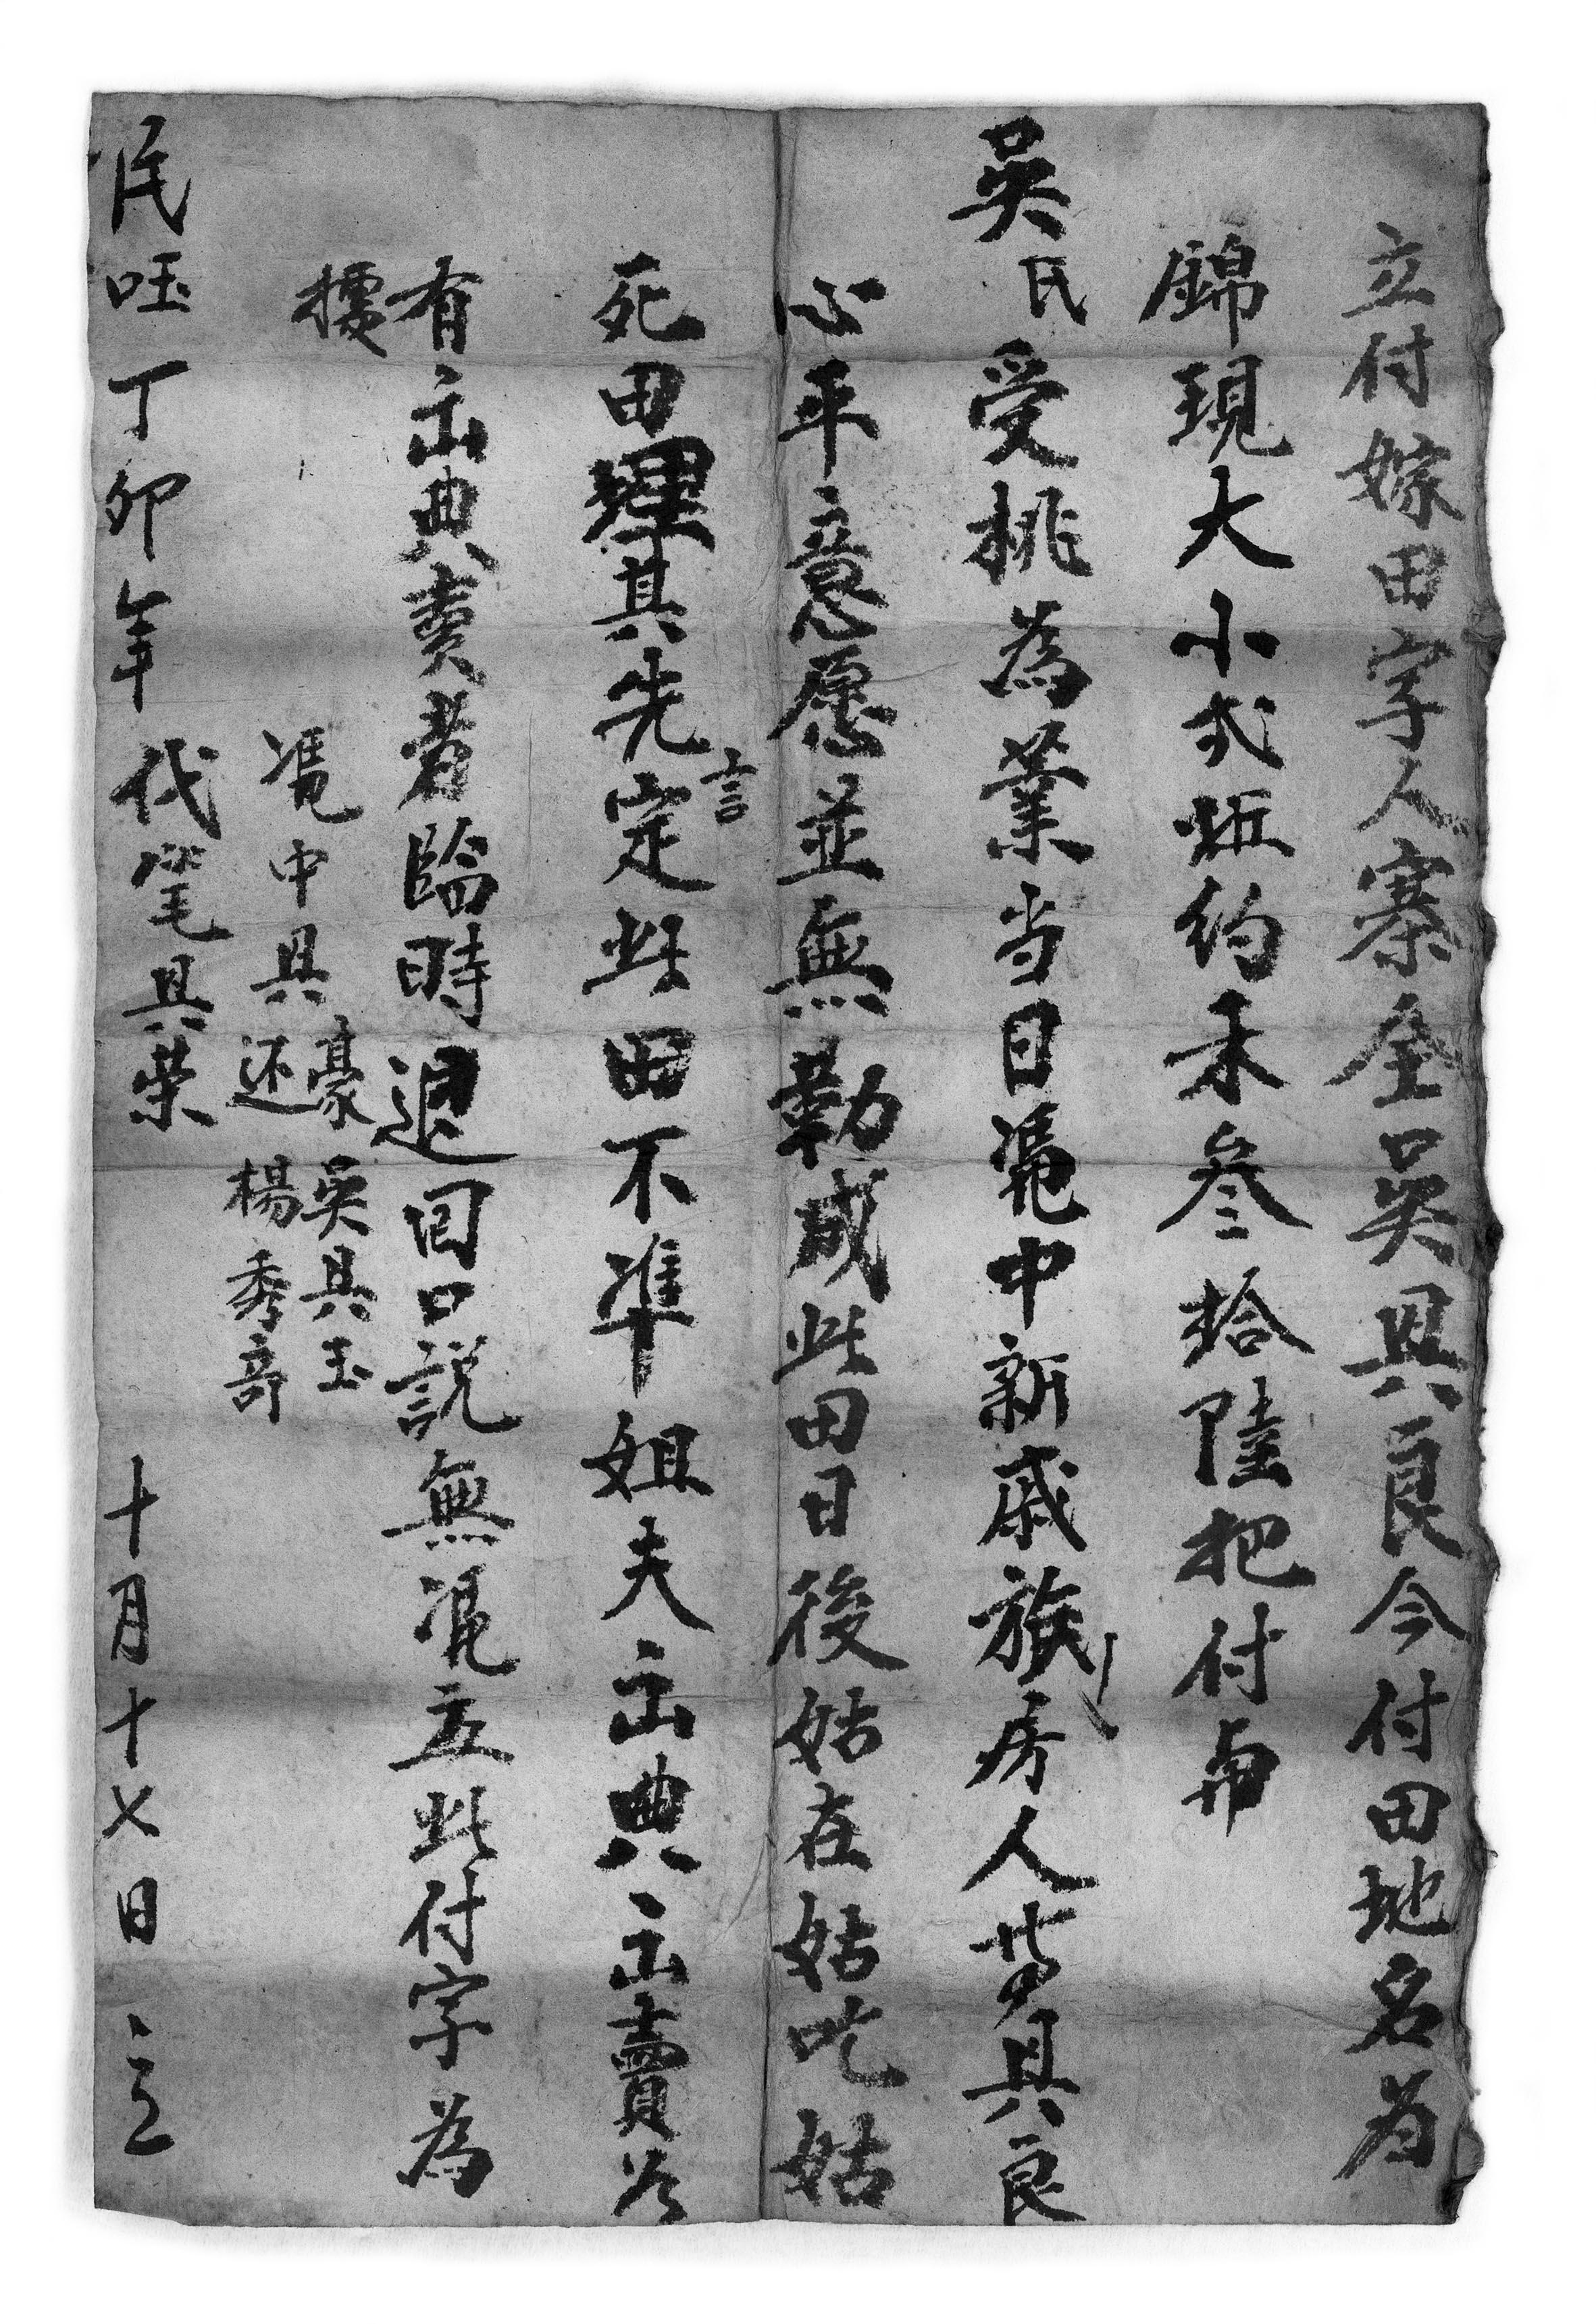 立付嫁田字人寨全吳具良今付田地名為
錦現大小弍坵約禾叁拾陸把付与
吳氏受桃為業当日凴中新戚族房人等具良
心平意愿並無勒成此田日後姑在姑吃姑
死田埋其先定言此田不准姐夫出典出賣若
有出典賣者臨時退回口説無凴立此付字為
據
凴中具豪 吳具玉
还 楊秀奇
代笔具荣
民囯丁卯年 十月十七日 立